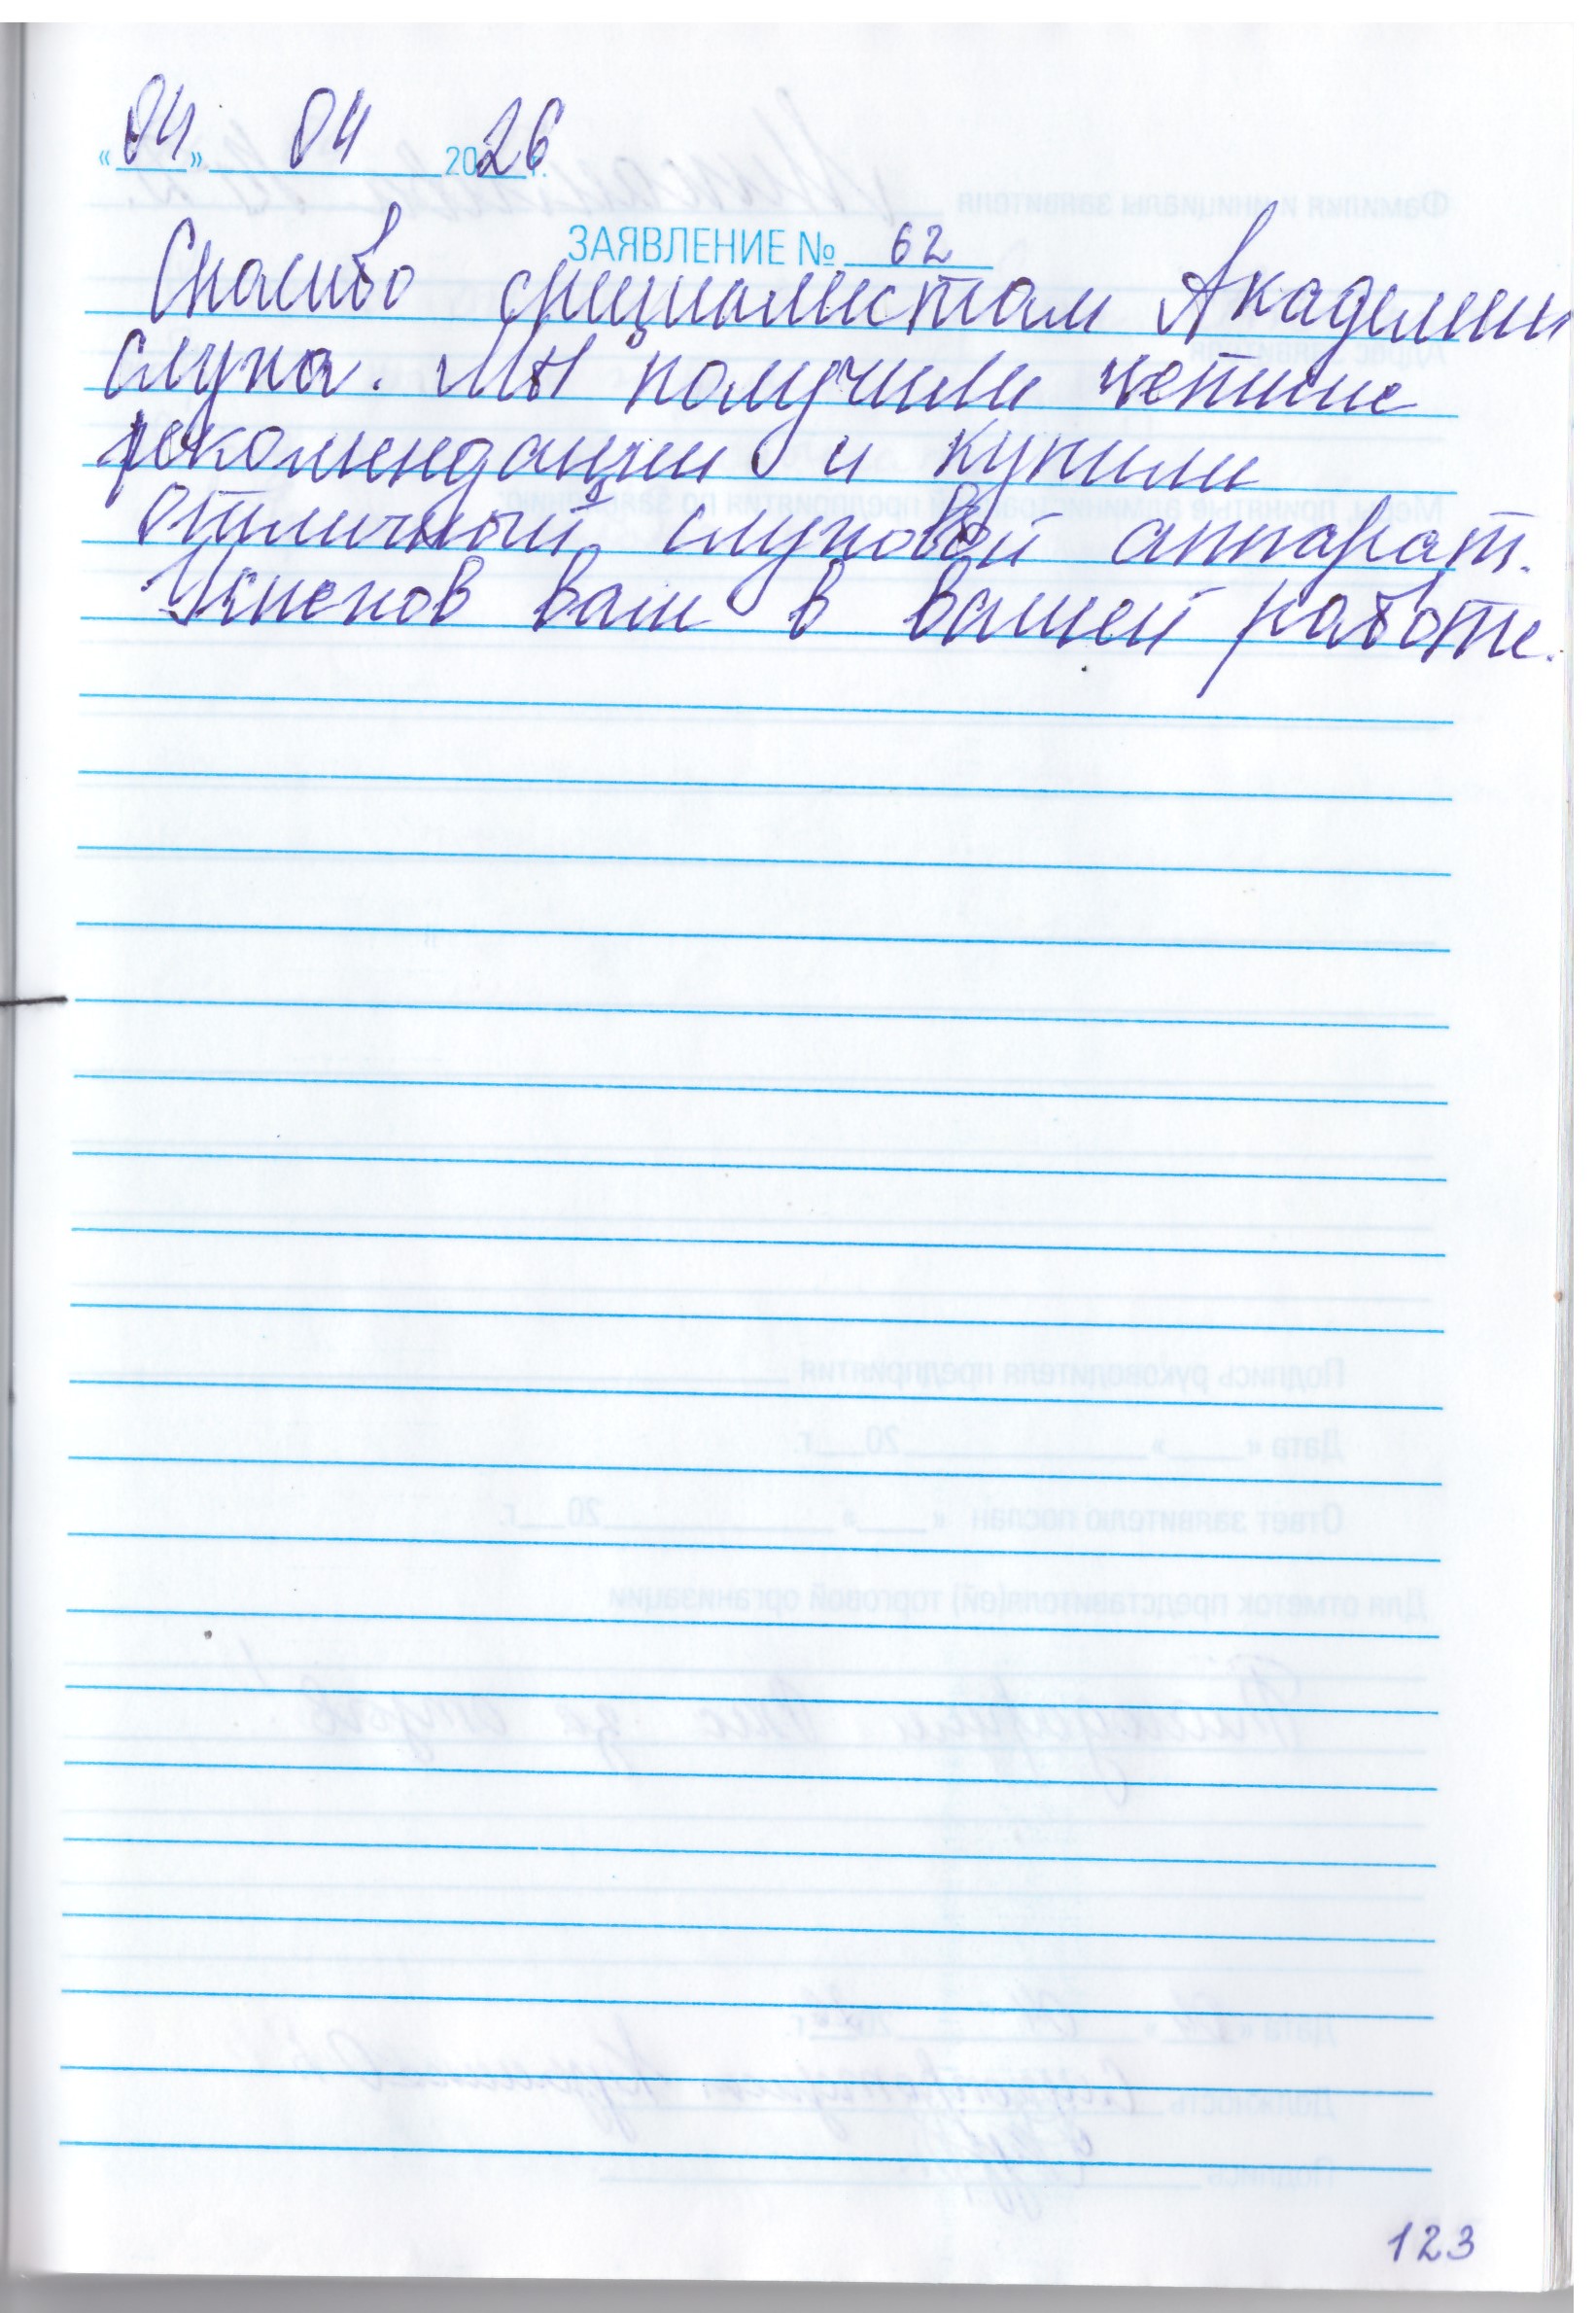 «04» 04 2026 г.
ЗАЯВЛЕНИЕ № 62
Спасибо специалистам Академии
слуха. Мы получили четкие
рекомендации и купили
отличный слуховой аппарат.
Успехов вам в вашей работе.
123